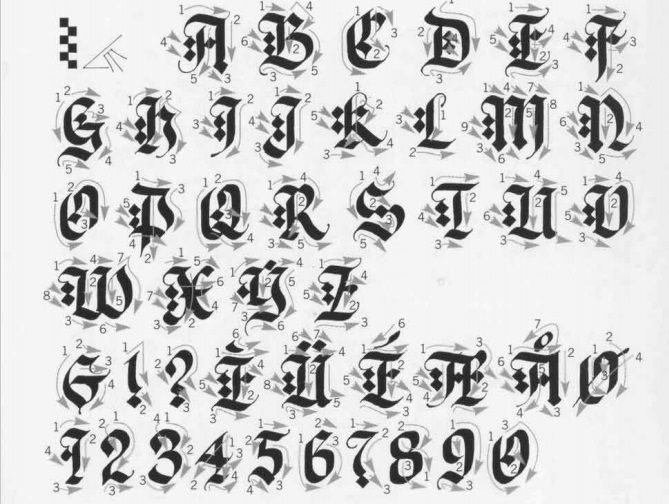 A B C D E F
G H I J K L M N
O P Q R S T U V
W X Y Z
& ! ? È Ü É Æ Å Ø
1 2 3 4 5 6 7 8 9 0